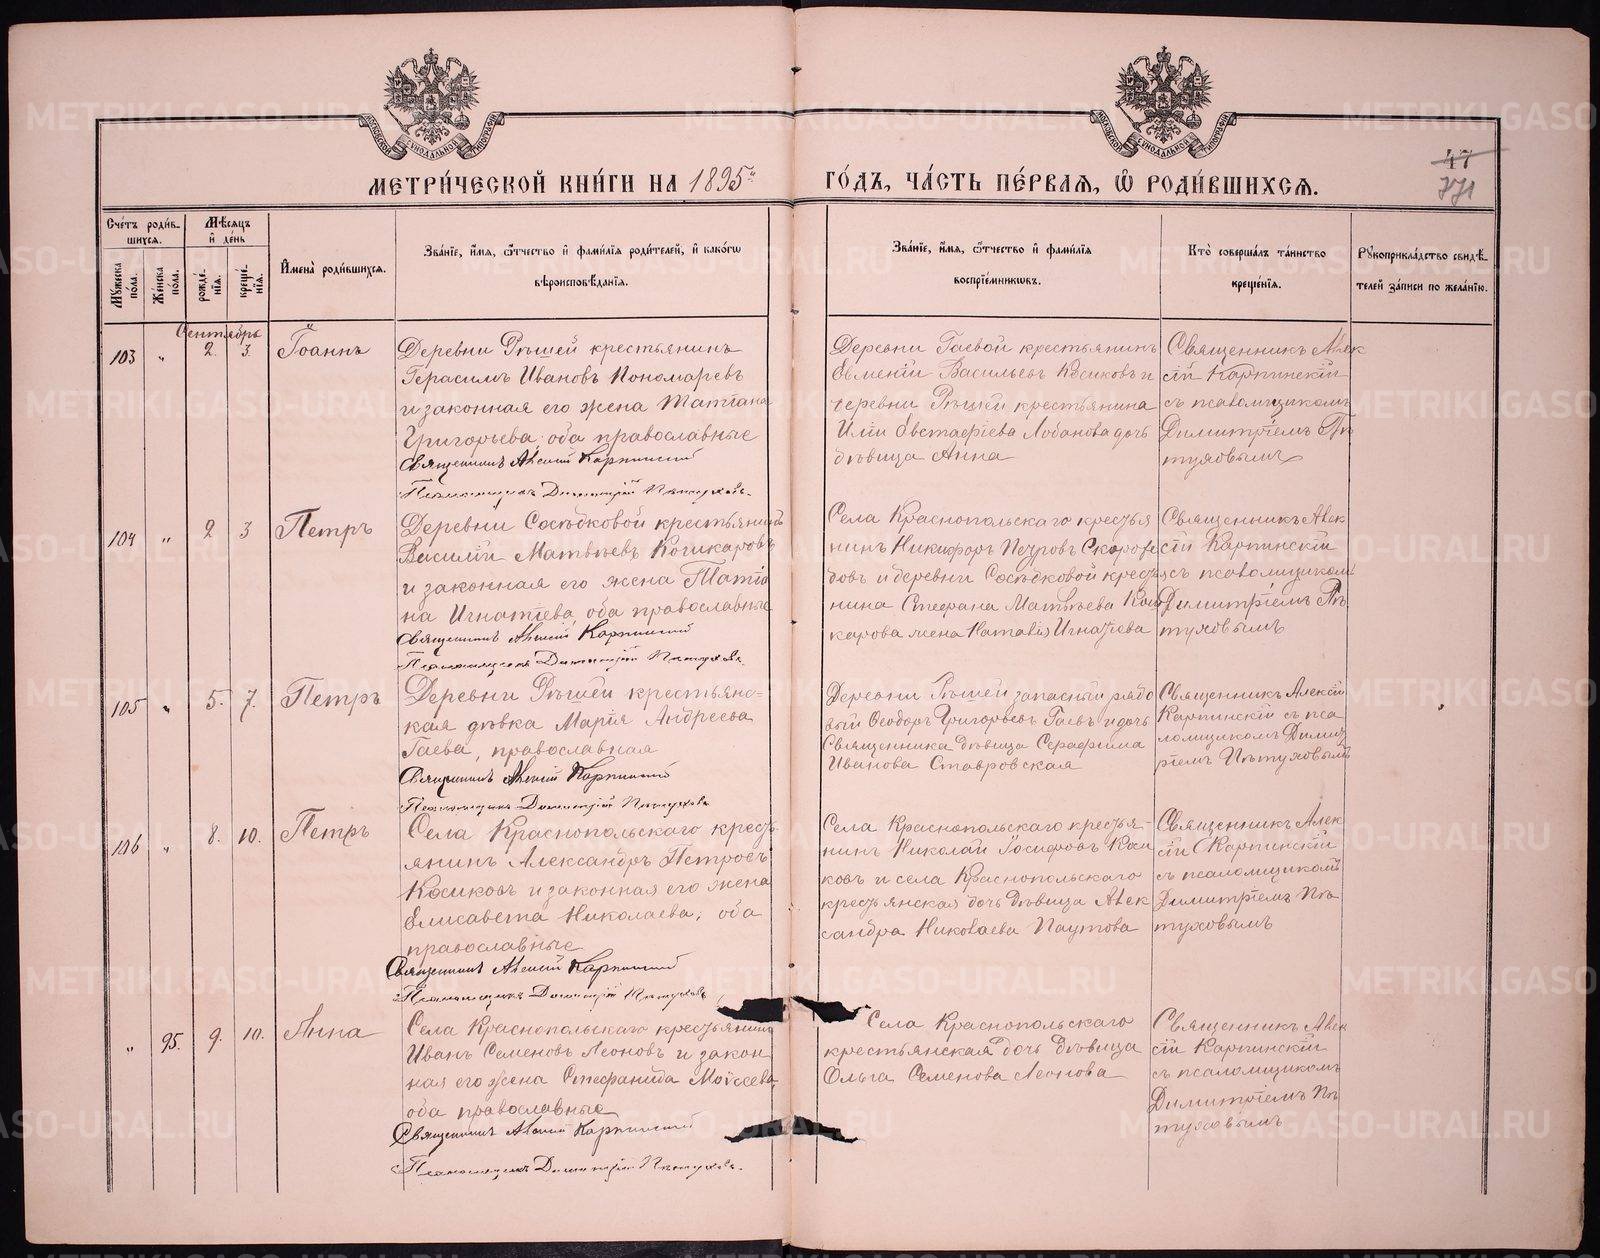 МЕТРИЧЕСКОЙ КНИГИ НА 1895й ГОДЪ, ЧАСТЬ ПЕРВАЯ, Ѡ РОДИВШИХСЯ.
47
771
Счетъ родившихся.
Мужеска пола.
Женска пола.
Мѣсяцъ и день
рожденія.
крещенія.
Имена родившихся.
Званіе, имя, ѿчество и фамилія родителей, и какого
вѣроисповѣданія.
Званіе, имя, ѿчество и фамилія
воспріемниковъ.
Кто совершалъ таинство
крещенія.
Рукоприкладство свидѣ-
телей записи по желанію.
Сентябрь
103 " 2. 3. Іоаннъ
Деревни Рѣшей крестьянинъ
Герасимъ Ивановъ Пономаревъ
и законная его жена Татіана
Григорьева, оба православные
Священникъ Алексій Карпинскій
Псаломщикъ Димитрій Пѣтуховъ.
Деревни Гаевой крестьянинъ
Евменій Васильевъ Косиковъ и
деревни Рѣшей крестьянина
Иліи Евстафіева Лобанова дочь
дѣвица Анна
Священникъ Алек
сій Карпинскій
съ псаломщикомъ
Димитріемъ Пѣ
туховымъ
104 " 2 3 Петръ
Деревни Сосѣдковой крестьянинъ
Василій Матвѣевъ Кошкаровъ
и законная его жена Татіа
на Игнатіева, оба православные
Священникъ Алексій Карпинскій
Псаломщикъ Димитрій Пѣтуховъ.
Села Краснопольскаго крестья
нинъ Никифоръ Петровъ Скоро
бовъ и деревни Сосѣдковой кресть
нина Стефана Матвѣева Кош
карова жена Наталія Игнатіева
Священникъ Алек
сій Карпинскій
съ псаломщикомъ
Димитріемъ Пѣ
туховымъ
105 " 5. 7. Петръ
Деревни Рѣшей крестьянс-
кая дѣвка Марія Андреева
Гаева, православная
Священникъ Алексій Карпинскій
Псаломщикъ Димитрій Пѣтуховъ
Деревни Рѣшей запасный рядо
вый Ѳеодоръ Григорьевъ Гаевъ и дочь
Священника дѣвица Серафима
Иванова Ставровская
Священникъ Алексій
Карпинскій съ пса
ломщикомъ Димит
ріемъ Пѣтуховымъ
106 " 8. 10. Петръ
Села Краснопольскаго кресть
янинъ Александръ Петровъ
Косиковъ и законная его жена
Елисавета Николаева, оба
православные
Священникъ Алексій Карпинскій
Псаломщикъ Димитрій Пѣтуховъ
Села Краснопольскаго крестья-
нинъ Николай Іосифовъ Кош
ковъ и села Краснопольскаго
крестьянская дочь дѣвица Алек
сандра Николаева Паутова
Священникъ Алек
сій Карпинскій
съ псаломщикомъ
Димитріемъ Пѣ
туховымъ
" 95. 9. 10. Анна
Села Краснопольскаго крестьянинъ
Иванъ Семеновъ Леоновъ и закон
ная его жена Стефанида Моѵсеева,
оба православные
Священникъ Алексій Карпинскій
Псаломщикъ Димитрій Пѣтуховъ.
Села Краснопольскаго
крестьянская дочь дѣвица
Ольга Семенова Леонова
Священникъ Алек
сій Карпинскій
съ псаломщикомъ
Димитріемъ Пѣ
туховымъ
METRIKI.GASO-URAL.RU